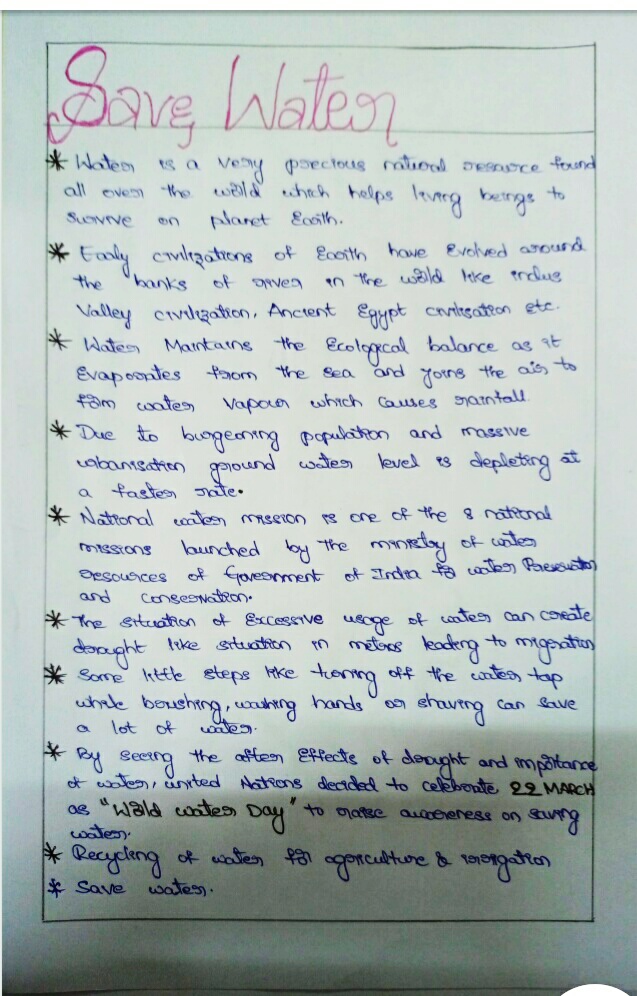 Save Water
* Water is a very precious natural resource found
all over the world which helps living beings to
survive on planet Earth.
* Early civilizations of Earth have Evolved around
the banks of river in the world like indus
Valley civilization, Ancient Egypt civilisation etc.
* Water Maintains the Ecological balance as it
Evaporates from the sea and joins the air to
form water vapour which causes rainfall.
* Due to burgeoning population and massive
urbanisation ground water level is depleting at
a faster rate.
* National water mission is one of the 8 national
missions launched by the ministry of water
resources of Government of India for water Preservation
and conservation.
* The situation of Excessive usage of water can create
drought like situation in metros leading to migration
* Some little steps like turning off the water tap
while brushing, washing hands or shaving can save
a lot of water.
* By seeing the after Effects of drought and importance
of water, united Nations decided to celebrate 22 MARCH
as "World water Day" to raise awareness on saving
water.
* Recycling of water for agriculture & irrigation
* Save water.